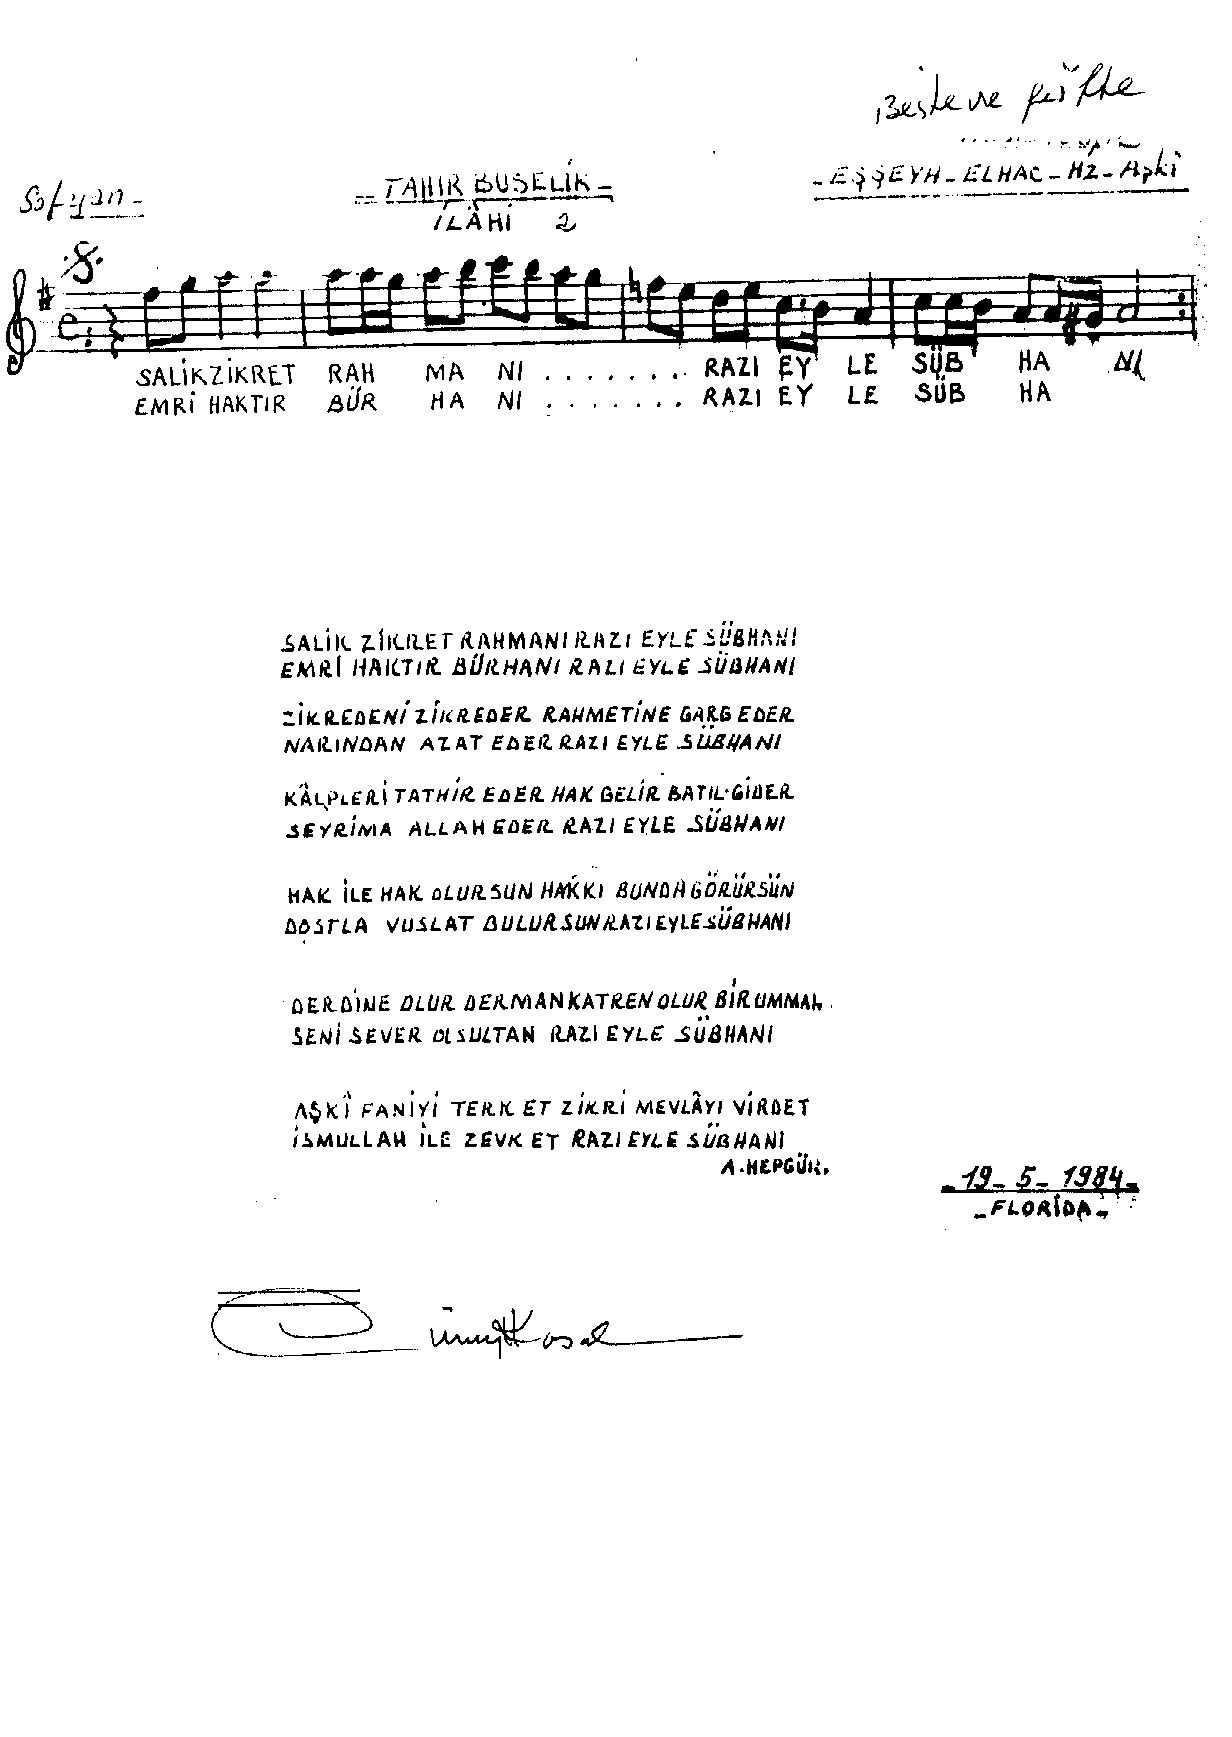 Beste ve güfte
Sofyan
TAHİR BUSELİK
EŞŞEYH - ELHAC - HZ - Aşkî
İLÂHİ 2
SALİK ZİKRET RAH MA NI . . . . . . . . RAZI EY LE SÜB HA NI
EMRİ HAKTIR BÜR HA NI . . . . . . . . RAZI EY LE SÜB HA
SALİK ZİKRET RAHMANI RAZI EYLE SÜBHANI
EMRİ HAKTIR BÜRHANI RAZI EYLE SÜBHANI
ZİKREDENİ ZİKREDER RAHMETİNE GARG EDER
NARINDAN AZAT EDER RAZI EYLE SÜBHANI
KÂLPLERİ TATHİR EDER HAK GELİR BATIL GİDER
SEYRİMA ALLAH EDER RAZI EYLE SÜBHANI
HAK İLE HAK OLURSUN HAKKI BUNDA GÖRÜRSÜN
DOSTLA VUSLAT BULURSUN RAZI EYLE SÜBHANI
DERDİNE OLUR DERMAN KATREN OLUR BİR UMMAN
SENİ SEVER OL SULTAN RAZI EYLE SÜBHANI
AŞKÎ FANİYİ TERK ET ZİKRİ MEVLÂYI VİRDET
İSMULLAH İLE ZEVK ET RAZI EYLE SÜBHANI
A.HEPGÜR.
19 - 5 - 1984
FLORİDA